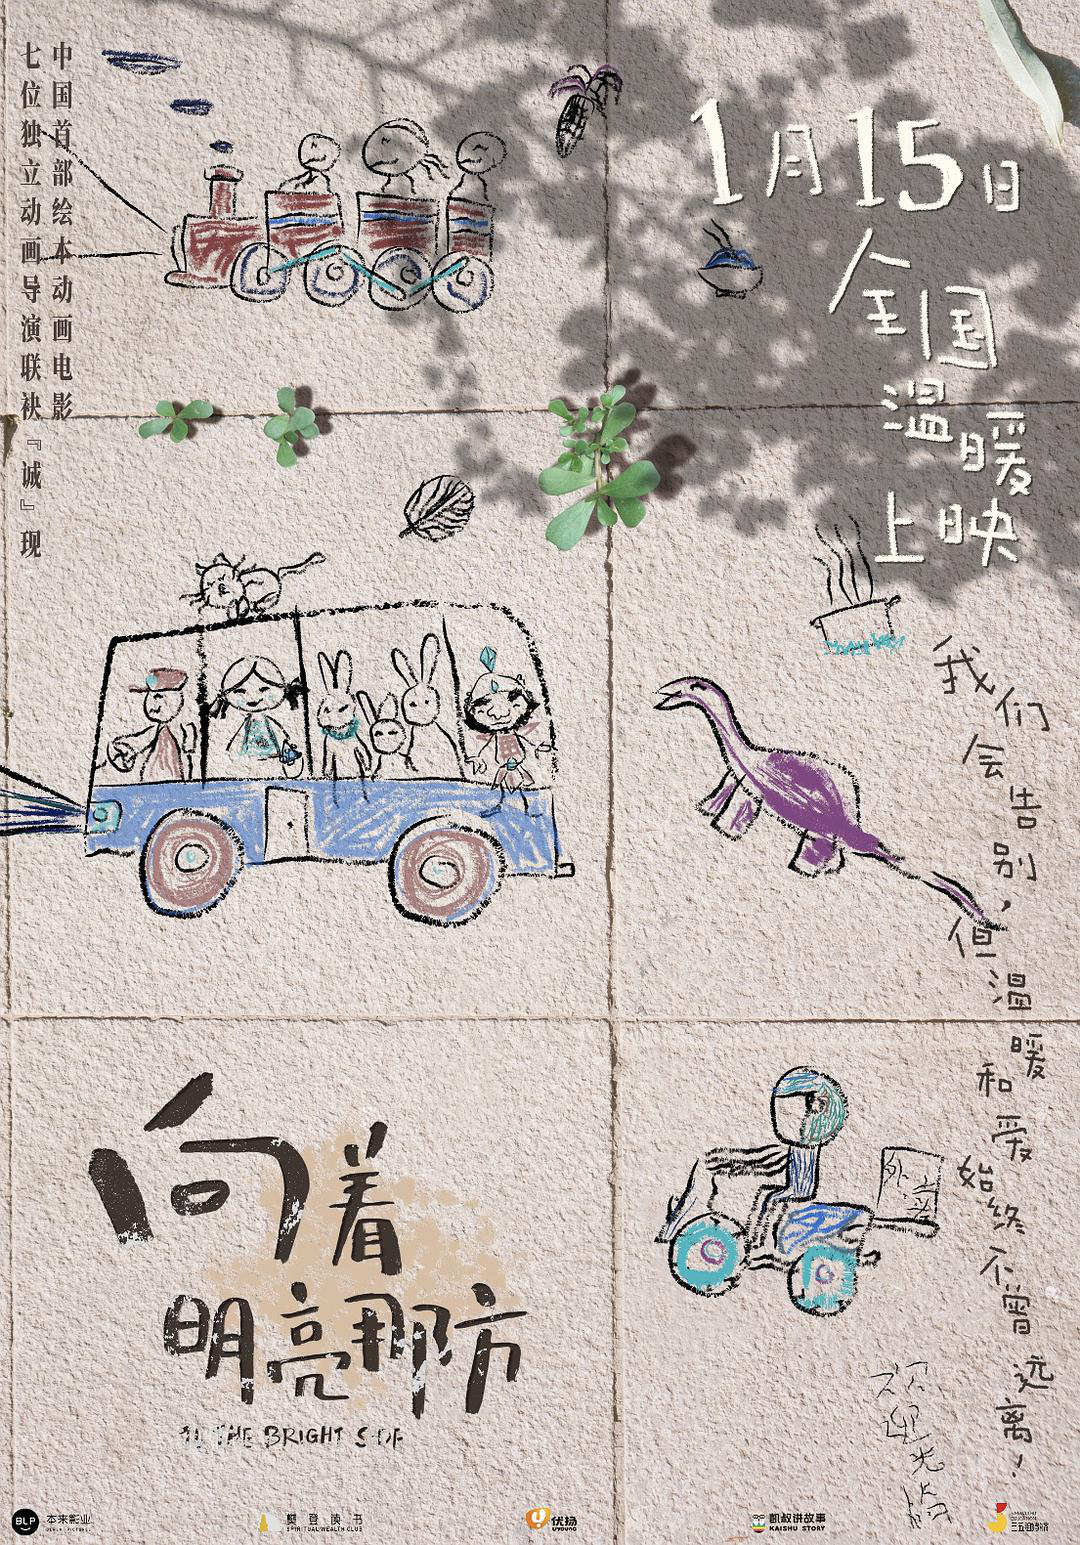 中国首部绘本动画电影
七位独立动画导演联袂『诚』现
1月15日
全国
温暖
上映
我们会告别，
但温暖和爱始终不曾远离！
外卖
向着
明亮那方
TO THE BRIGHT SIDE
欢迎光临
BLP 本来影业
樊登读书
SPIRITUAL WEALTH CLUB
优扬
UYOUNG
凯叔讲故事
KAISHU STORY